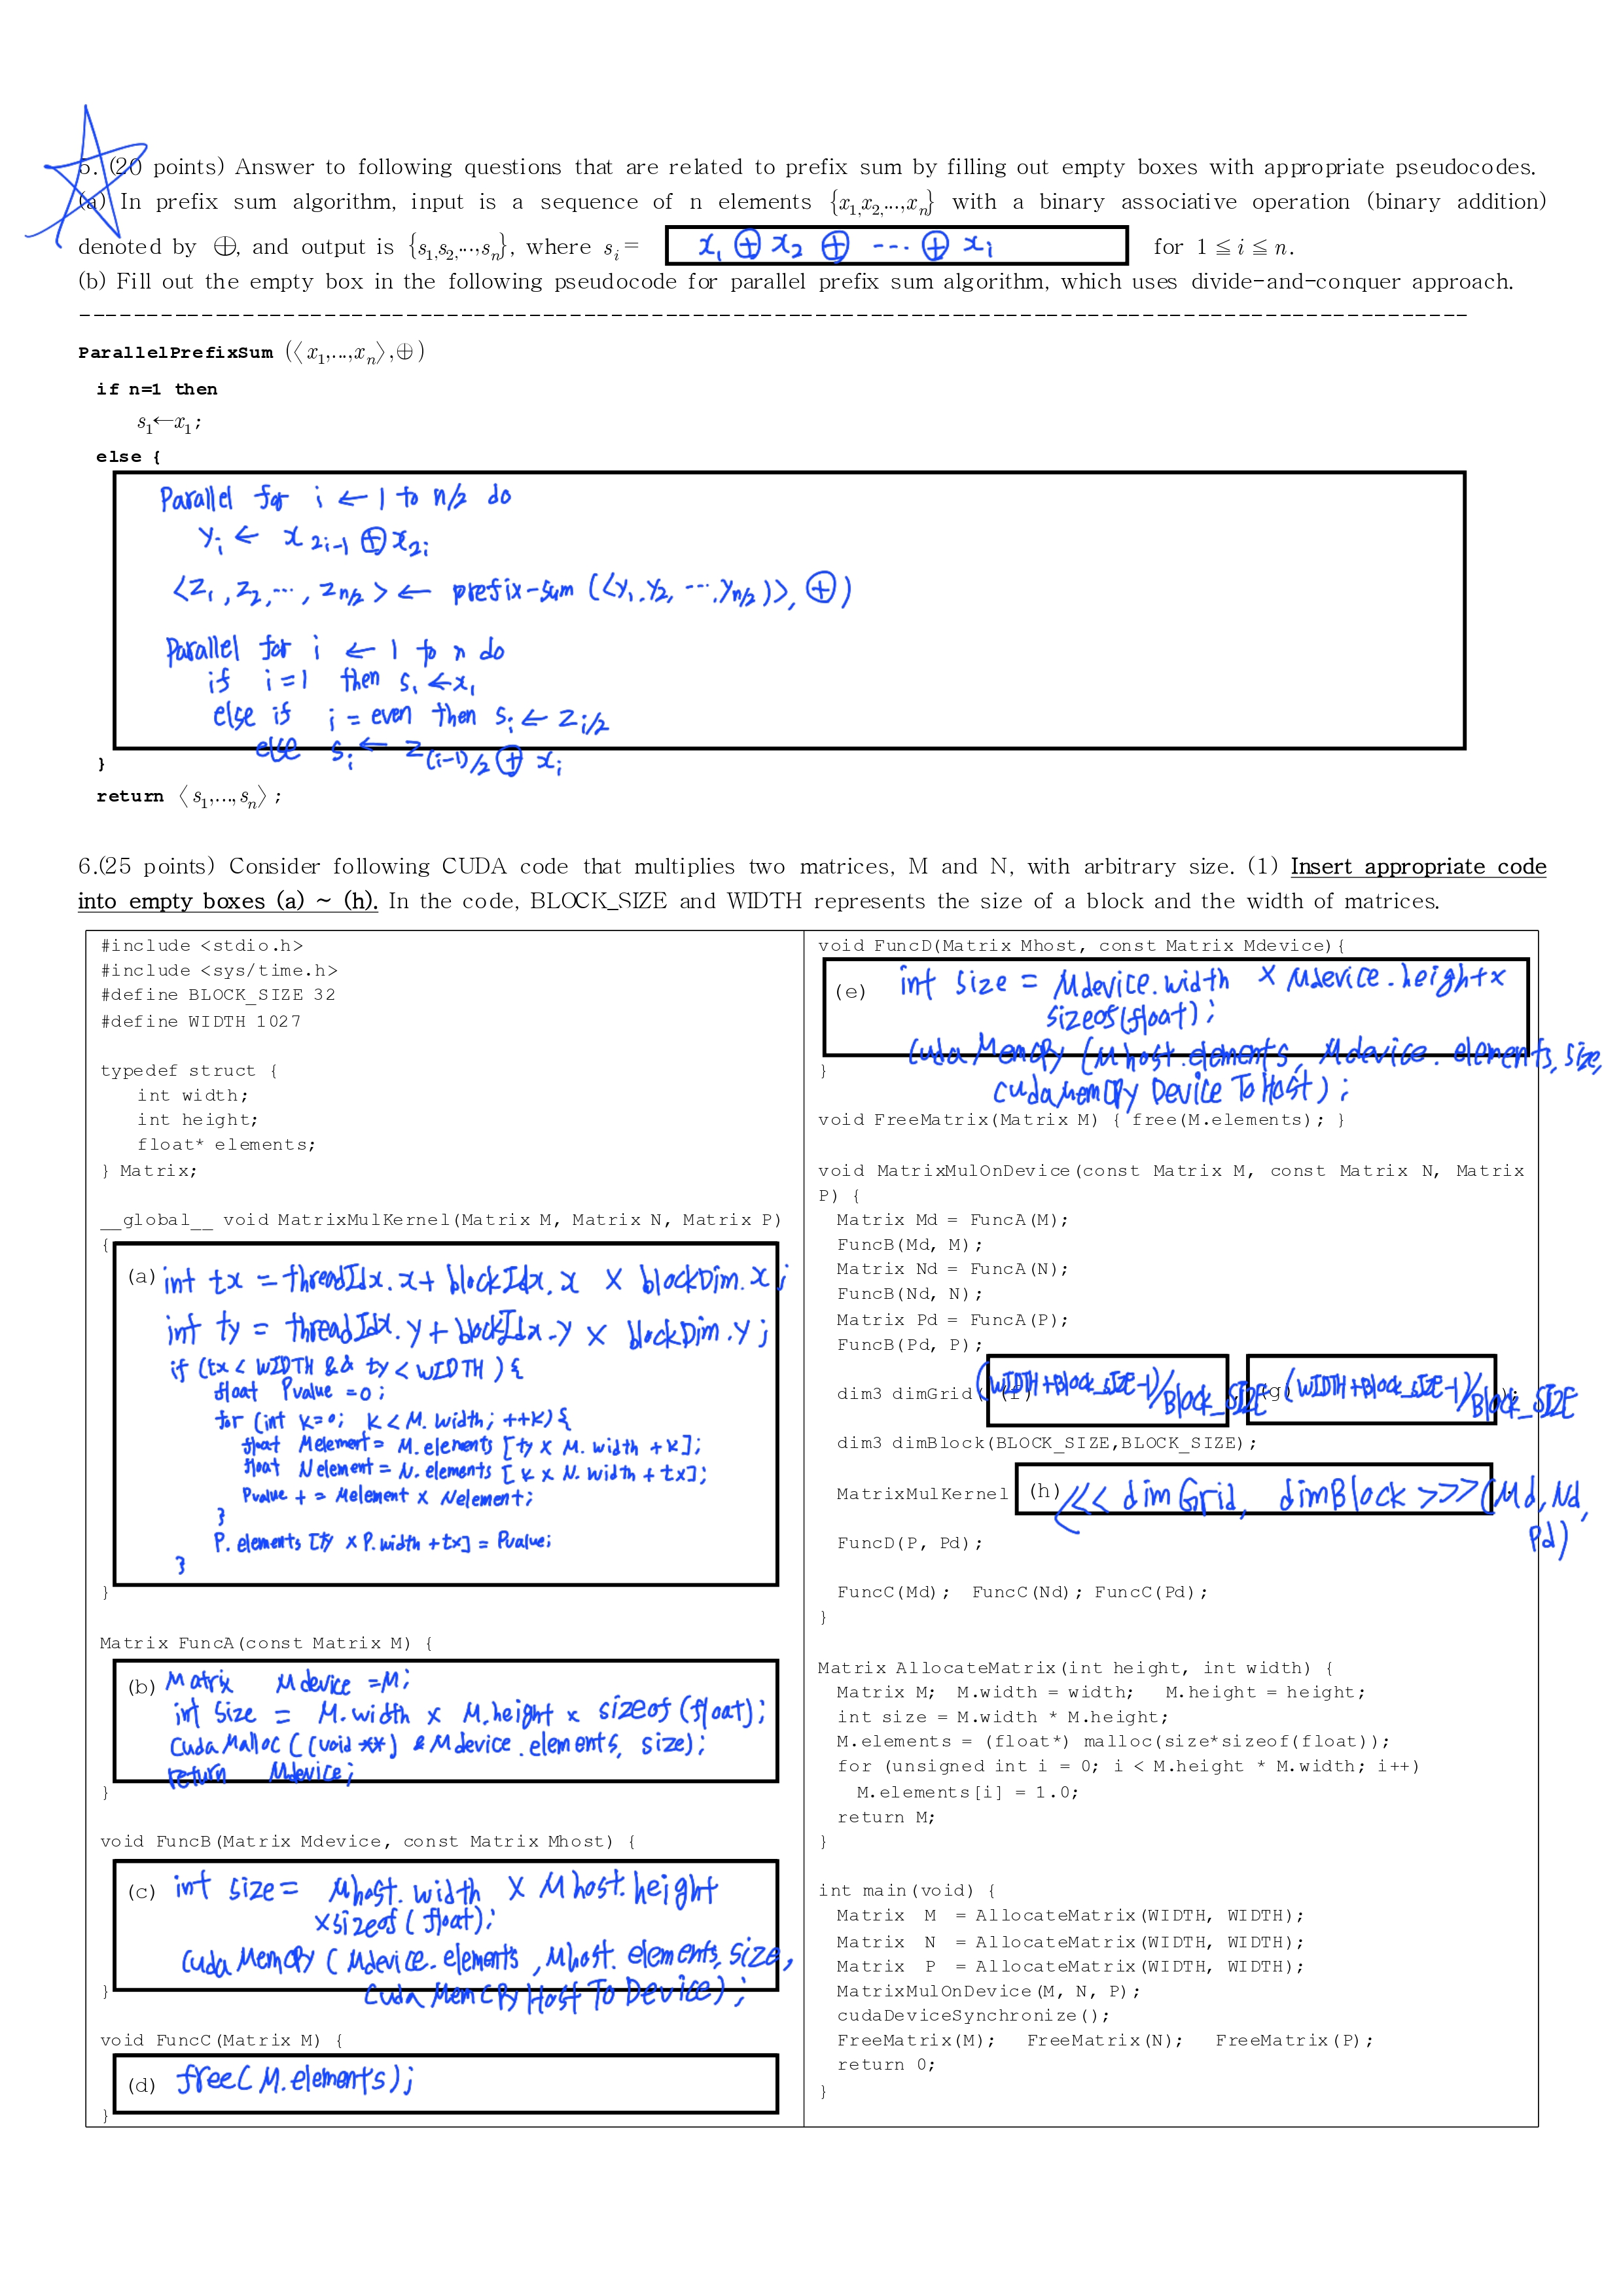 5. (20 points) Answer to following questions that are related to prefix sum by filling out empty boxes with appropriate pseudocodes.
(a) In prefix sum algorithm, input is a sequence of n elements {x₁,x₂,...,xₙ} with a binary associative operation (binary addition)
denoted by ⊕, and output is {s₁,s₂,...,sₙ}, where sᵢ= x₁ ⊕ x₂ ⊕ --- ⊕ xᵢ for 1 ≦ i ≦ n.
(b) Fill out the empty box in the following pseudocode for parallel prefix sum algorithm, which uses divide-and-conquer approach.
ParallelPrefixSum (⟨x₁,...,xₙ⟩,⊕)
if n=1 then
s₁←x₁;
else {
Parallel for i ← 1 to n/2 do
yᵢ ← x_{2i-1} ⊕ x_{2i}
<z₁, z₂, ..., z_{n/2}> ← prefix-sum (<y₁, y₂, ..., y_{n/2})>, ⊕)
Parallel for i ← 1 to n do
if i=1 then s₁ ← x₁
else if i = even then sᵢ ← z_{i/2}
else sᵢ ← z_{(i-1)/2} ⊕ xᵢ
}
return ⟨s₁,...,sₙ⟩;
6.(25 points) Consider following CUDA code that multiplies two matrices, M and N, with arbitrary size. (1) Insert appropriate code
into empty boxes (a) ~ (h). In the code, BLOCK_SIZE and WIDTH represents the size of a block and the width of matrices.
#include <stdio.h>
#include <sys/time.h>
#define BLOCK_SIZE 32
#define WIDTH 1027
typedef struct {
int width;
int height;
float* elements;
} Matrix;
__global__ void MatrixMulKernel(Matrix M, Matrix N, Matrix P)
{
(a) int tx = threadIdx.x + blockIdx.x × blockDim.x;
int ty = threadIdx.y + blockIdx.y × blockDim.y;
if (tx < WIDTH && ty < WIDTH) {
float Pvalue = 0;
for (int k=0; k < M.width; ++k){
float Melement = M.elements [ty × M.width + k];
float Nelement = N.elements [k × N.width + tx];
Pvalue += Melement × Nelement;
}
P.elements [ty × P.width + tx] = Pvalue;
}
}
Matrix FuncA(const Matrix M) {
(b) Matrix Mdevice = M;
int size = M.width × M.height × sizeof(float);
cudaMalloc((void **) &Mdevice.elements, size);
return Mdevice;
}
void FuncB(Matrix Mdevice, const Matrix Mhost) {
(c) int size = Mhost.width × Mhost.height
×sizeof(float);
cudaMemcpy(Mdevice.elements, Mhost.elements, size,
cudaMemcpyHostToDevice);
}
void FuncC(Matrix M) {
(d) free(M.elements);
}
void FuncD(Matrix Mhost, const Matrix Mdevice){
(e) int size = Mdevice.width × Mdevice.height×
sizeof(float);
cudaMemcpy (Mhost.elements, Mdevice.elements, size,
cudaMemcpyDeviceToHost);
}
void FreeMatrix(Matrix M) { free(M.elements); }
void MatrixMulOnDevice(const Matrix M, const Matrix N, Matrix
P) {
Matrix Md = FuncA(M);
FuncB(Md, M);
Matrix Nd = FuncA(N);
FuncB(Nd, N);
Matrix Pd = FuncA(P);
FuncB(Pd, P);
dim3 dimGrid( (f) (WIDTH+Block_SIZE-1)/Block_SIZE , (g) (WIDTH+Block_SIZE-1)/Block_SIZE );
dim3 dimBlock(BLOCK_SIZE,BLOCK_SIZE);
MatrixMulKernel (h) <<< dimGrid, dimBlock >>> (Md, Nd,
Pd) ;
FuncD(P, Pd);
FuncC(Md); FuncC(Nd); FuncC(Pd);
}
Matrix AllocateMatrix(int height, int width) {
Matrix M; M.width = width; M.height = height;
int size = M.width * M.height;
M.elements = (float*) malloc(size*sizeof(float));
for (unsigned int i = 0; i < M.height * M.width; i++)
M.elements[i] = 1.0;
return M;
}
int main(void) {
Matrix M = AllocateMatrix(WIDTH, WIDTH);
Matrix N = AllocateMatrix(WIDTH, WIDTH);
Matrix P = AllocateMatrix(WIDTH, WIDTH);
MatrixMulOnDevice(M, N, P);
cudaDeviceSynchronize();
FreeMatrix(M); FreeMatrix(N); FreeMatrix(P);
return 0;
}